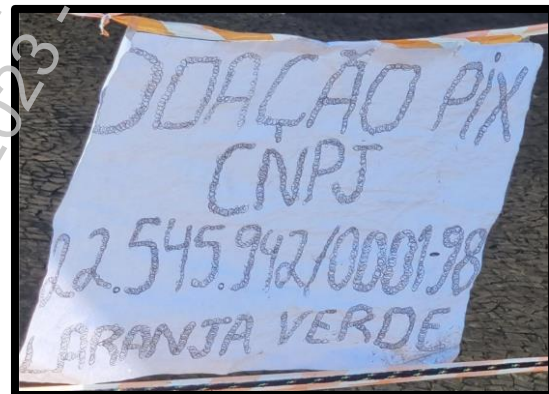 DOAÇÃO PIX
CNPJ
22.545.942/0001-98
LARANJA VERDE
2023 -